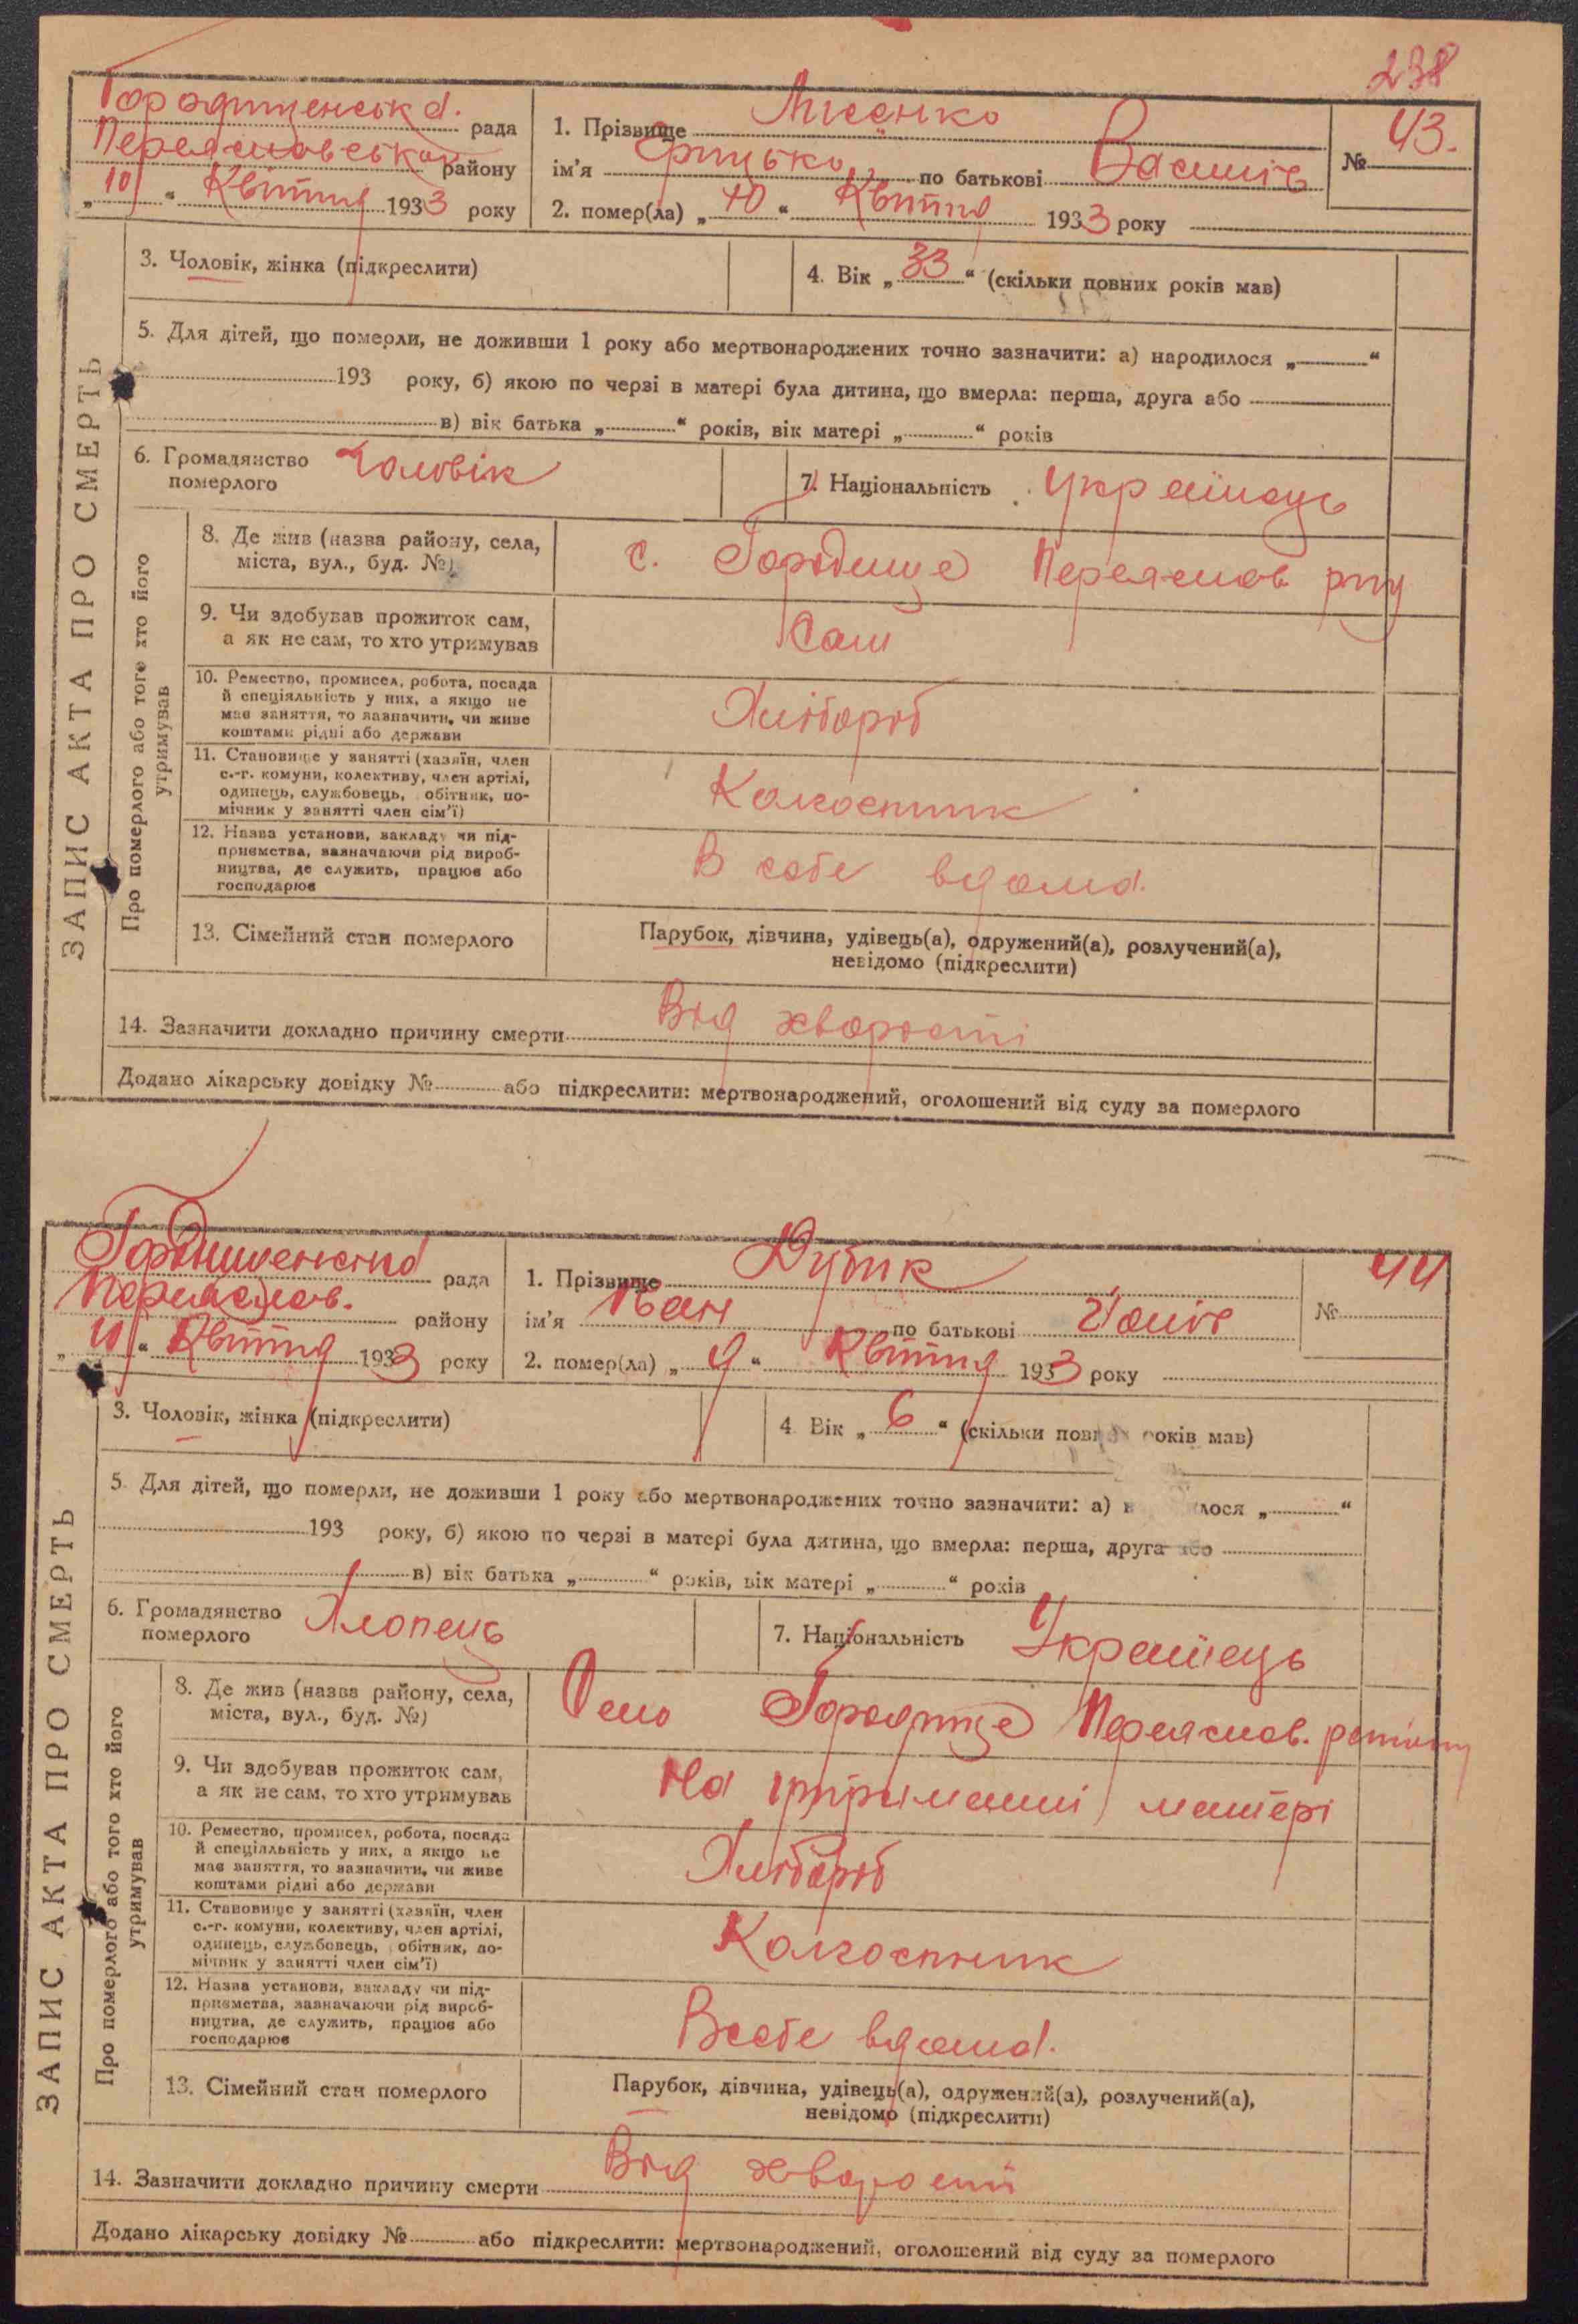 238
Городищенська рада
Переяславської району
„10“ Квітня 1933 року
1. Прізвище Лисенко
ім'я Грицько по батькові Василів
№ 43.
2. помер(ла) „10“ Квітня 1933 року
ЗАПИС АКТА ПРО СМЕРТЬ
3. Чоловік, жінка (підкреслити)
4. Вік „33“ (скільки повних років мав)
5. Для дітей, що померли, не доживши 1 року або мертвонароджених точно зазначити: а) народилося „ “
193 року, б) якою по черзі в матері була дитина, що вмерла: перша, друга або
в) вік батька „ “ років, вік матері „ “ років
6. Громадянство померлого Чоловік
7. Національність Українець
Про померлого або того хто його утримував
8. Де жив (назва району, села,
міста, вул., буд. №)
с. Городище Переяслов р-ну
9. Чи здобував прожиток сам,
а як не сам, то хто утримував
Сам
10. Ремество, промисел, робота, посада
й спеціяльність у них, а якщо не
мав заняття, то зазначити, чи живе
коштами рідні або держави
Хлібороб
11. Становище у занятті (хазяїн, член
с.-г. комуни, колективу, член артілі,
одинець, службовець, обітник, по-
мічник у занятті член сім'ї)
Колгоспник
12. Назва установи, закладу чи під-
приємства, зазначаючи рід вироб-
ництва, де служить, працює або
господарює
В себе вдома.
13. Сімейний стан померлого
Парубок, дівчина, удівець(а), одружений(а), розлучений(а),
невідомо (підкреслити)
14. Зазначити докладно причину смерти Від хворости
Додано лікарську довідку № або підкреслити: мертвонароджений, оголошений від суду за померлого
Городищенська рада
Переяслов. району
„11“ Квітня 1933 року
1. Прізвище Дубик
ім'я Іван по батькові
№ 44
2. помер(ла) „9“ Квітня 1933 року
ЗАПИС АКТА ПРО СМЕРТЬ
3. Чоловік, жінка (підкреслити)
4. Вік „6“ (скільки повних років мав)
5. Для дітей, що померли, не доживши 1 року або мертвонароджених точно зазначити: а) лося „ “
193 року, б) якою по черзі в матері була дитина, що вмерла: перша, друга або
в) вік батька „ “ років, вік матері „ “ років
6. Громадянство померлого Хлопець
7. Національність Українець
Про померлого або того хто його утримував
8. Де жив (назва району, села,
міста, вул., буд. №)
Село Городище Переяслов. району
9. Чи здобував прожиток сам,
а як не сам, то хто утримував
На утриманні матері
10. Ремество, промисел, робота, посада
й спеціяльність у них, а якщо не
мав заняття, то зазначити, чи живе
коштами рідні або держави
Хлібороб
11. Становище у занятті (хазяїн, член
с.-г. комуни, колективу, член артілі,
одинець, службовець, обітник, по-
мічник у занятті член сім'ї)
Колгоспник
12. Назва установи, закладу чи під-
приємства, зазначаючи рід вироб-
ництва, де служить, працює або
господарює
В себе вдома.
13. Сімейний стан померлого
Парубок, дівчина, удівець(а), одружений(а), розлучений(а),
невідомо (підкреслити)
14. Зазначити докладно причину смерти Від хворости
Додано лікарську довідку № або підкреслити: мертвонароджений, оголошений від суду за померлого